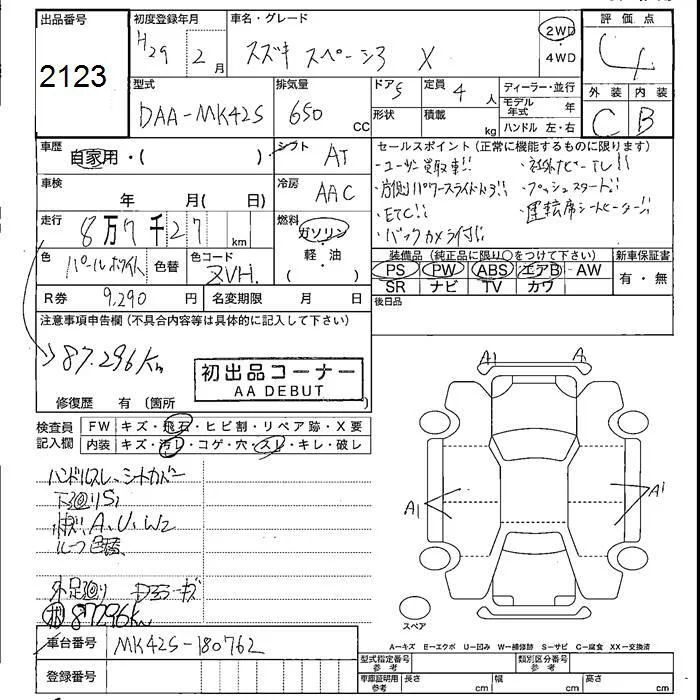 出品番号
2123
初度登録年月
H29 2月
車名・グレード
スズキ スペーシア X
2WD
・
4WD
評価点
4
外装 内装
C B
型式
DAA-MK42S
排気量
650 CC
ドア 5
形状
定員 4 人
積載 kg
ディーラー・並行
モデル年式 年
ハンドル 左・右
車歴
自家用・( )
シフト
AT
車検
年 月( 日)
冷房
AAC
走行
8万7千27 km
燃料
ガソリン
・
軽・油
( )
色
パールホワイト
色替
色コード
ZVH
R券 9,290 円
名変期限 月 日
セールスポイント(正常に機能するものに限ります)
・ユーザー買取車!! ・社外ナビ・TV!!
・片側パワースライドドア!! ・プッシュスタート!!
・ETC!! ・運転席シートヒーター!!
・バックカメラ付!!
装備品(純正品に限り○をつけて下さい)
PS PW ABS エアB AW
SR ナビ TV カワ
新車保証書
有・無
後日品
注意事項申告欄(不具合内容等は具体的に記入して下さい)
87.296Km
初出品コーナー
AA DEBUT
修復歴 有 (箇所
検査員記入欄
FW キズ・飛石・ヒビ割・リペア跡・X要
内装 キズ・汚レ・コゲ・穴・スレ・キレ・破レ
ハンドルスレ、シートカバー
下廻りS
小キズ、A、U、W2
ルーフ色替
外足廻り
87296Km
A1 A
A1 A1
スペア
A-キズ E-エクボ U-凹み W-補修跡 S-サビ C-腐食 XX-交換済
車台番号
MK42S-180762
登録番号
型式指定番号
参考
類別区分番号
参考
車庫証明用
参考
長さ cm
幅 cm
高さ cm